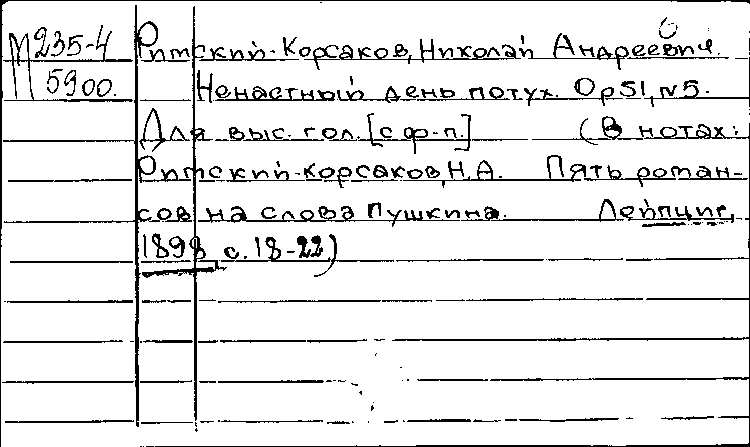 М 235-4 Римский-Корсаков, Николай Андреевич.
5900. Ненастный день потух. Op 51, №5.
Для выс. гол. [с ф-п.] (В нотах:
Римский-Корсаков, Н.А. Пять роман-
сов на слова Пушкина. Лейпциг,
1898, с. 18-22.)